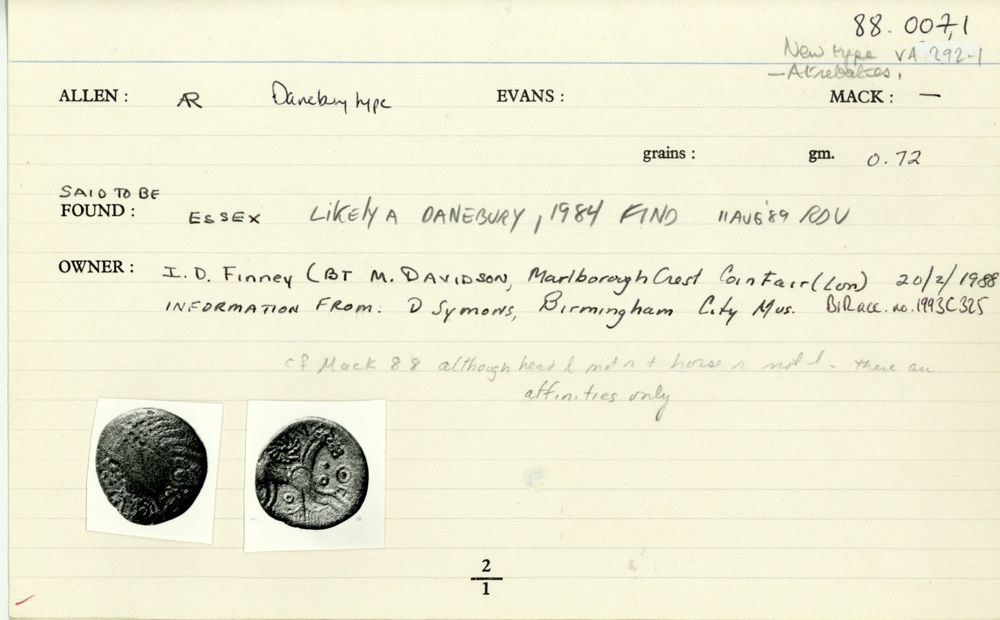 88.0071
New type VA 292-1
- Atrebates.
ALLEN : AR Danebury type EVANS : MACK : —
grains : gm. 0.72
SAID TO BE
FOUND : ESSEX LIKELY A DANEBURY, 1984 FIND 11 AUG '89 RDV
OWNER : I.D. Finney (BT M. DAVIDSON, Marlborough Crest Coin Fair (Lon) 20/2/1988
INFORMATION FROM: D Symons, Birmingham City Mus. BiR acc. no. 1993C325
cf Mack 88 although head l not rt horse r not l - there an
affinities only
2
1